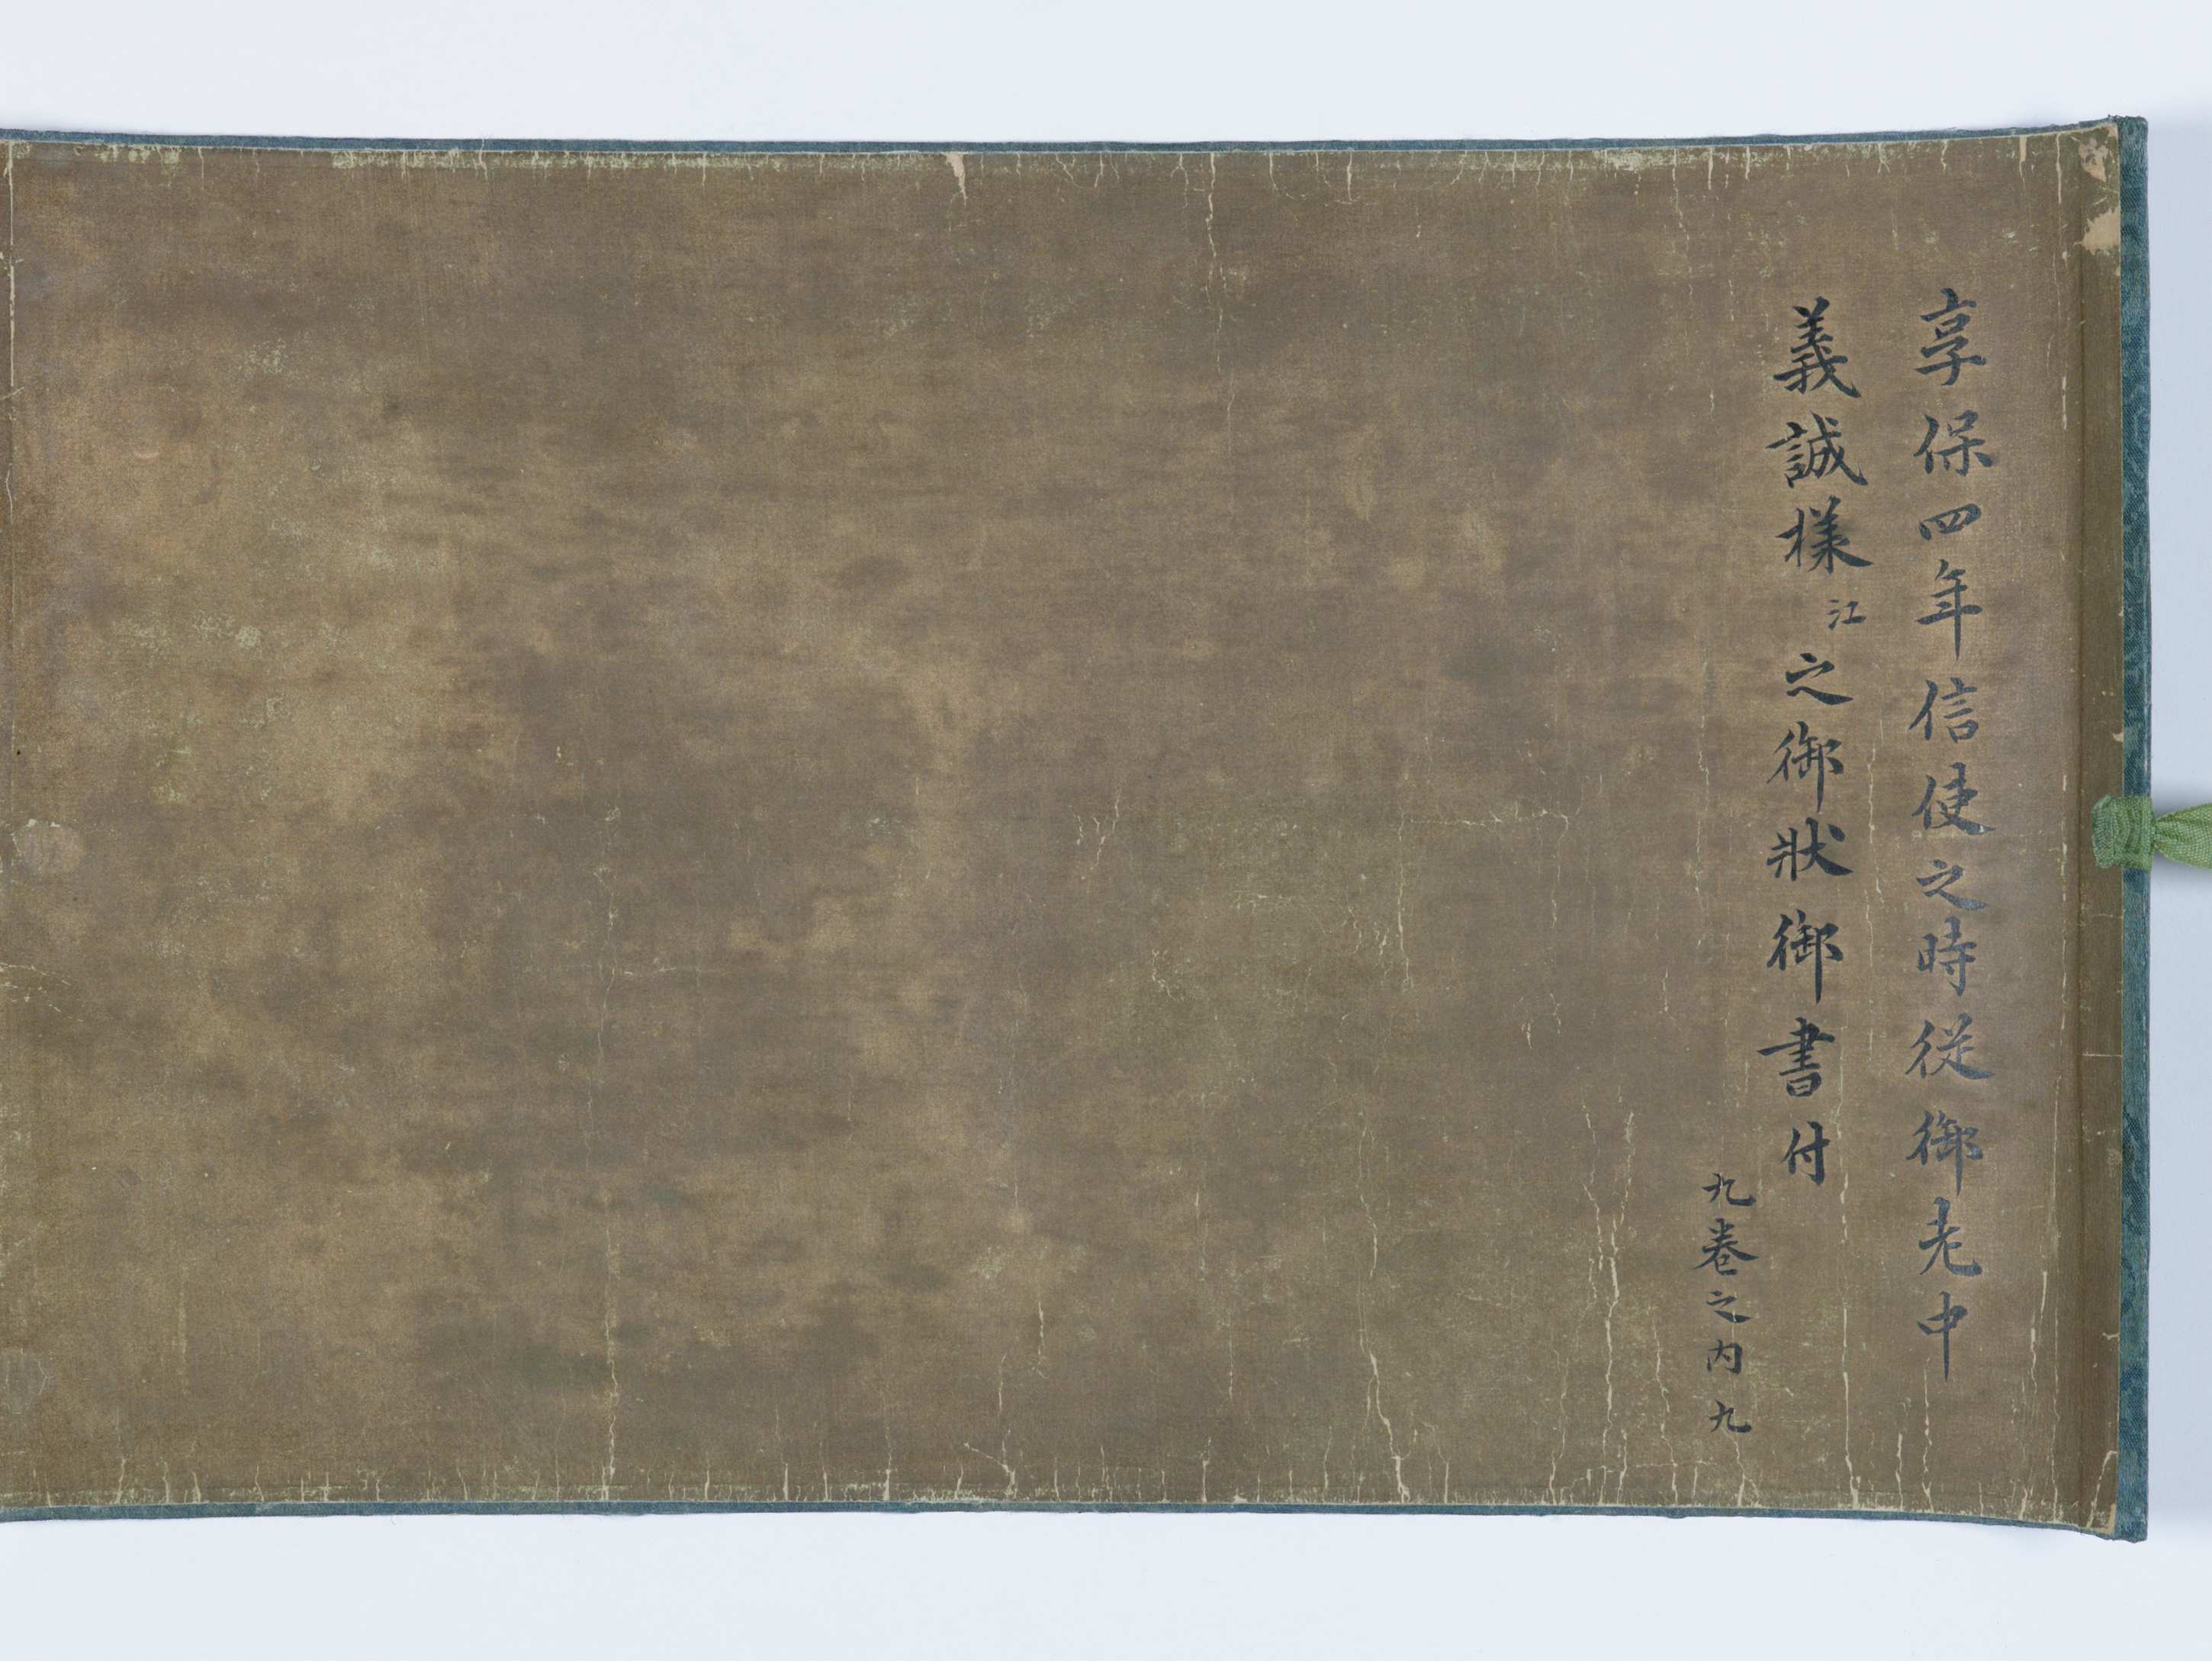 享保四年信使之時従御老中
義誠様江之御狀御書付
九巻之内九